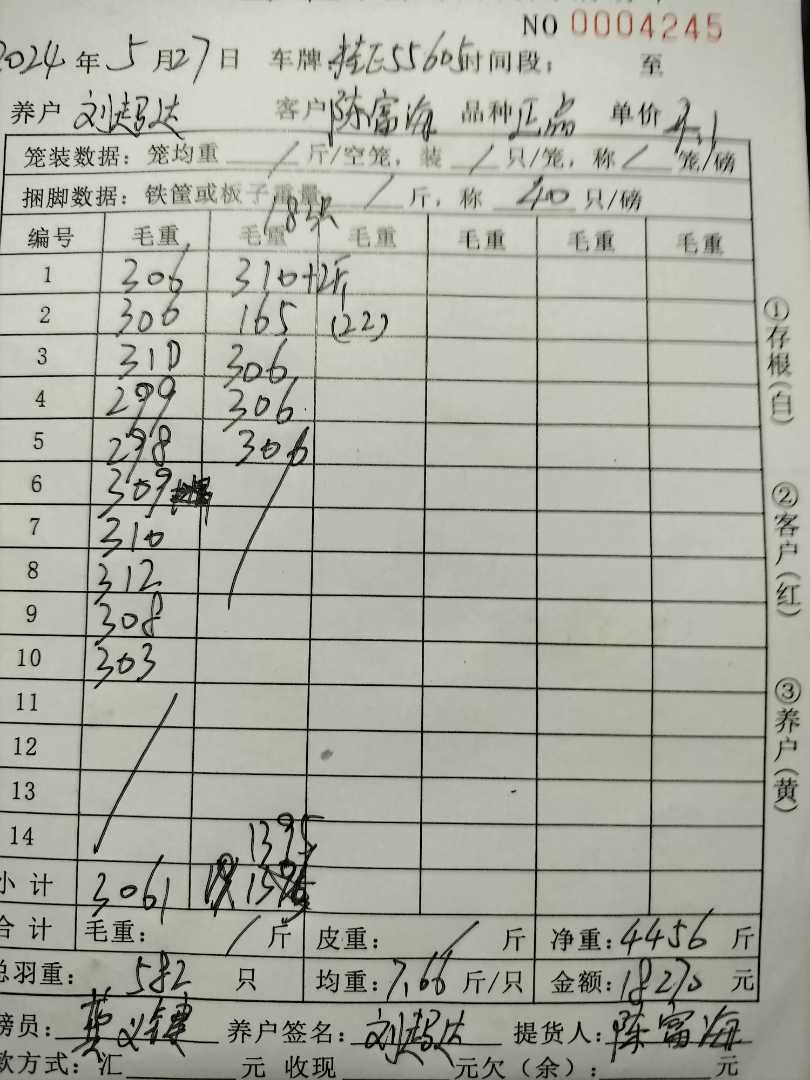 NO 0004245
2024年5月27日 车牌:桂E55605时间段: 至
养户 刘超达 客户 陈富海 品种 正品 单价 4.1
笼装数据: 笼均重 / 斤/空笼, 装 / 只/笼, 称 / 笼/磅
捆脚数据: 铁筐或板子重量 / 斤, 称 40 只/磅
18只
编号 毛重 毛重 毛重 毛重 毛重 毛重
1 306 310+2斤
2 306 165 (22)
3 310 306
4 299 306
5 298 306
6 309
7 310
8 312
9 308
10 303
11
12
13
14 1395
小计 3061
合计 毛重: / 斤 皮重: / 斤 净重: 4456 斤
总羽重: 582 只 均重: 7.66 斤/只 金额: 18270 元
磅员: 养户签名: 刘超达 提货人: 陈富海
款方式: 汇 元 收现 元欠(余): 元
①存根(白)
②客户(红)
③养户(黄)